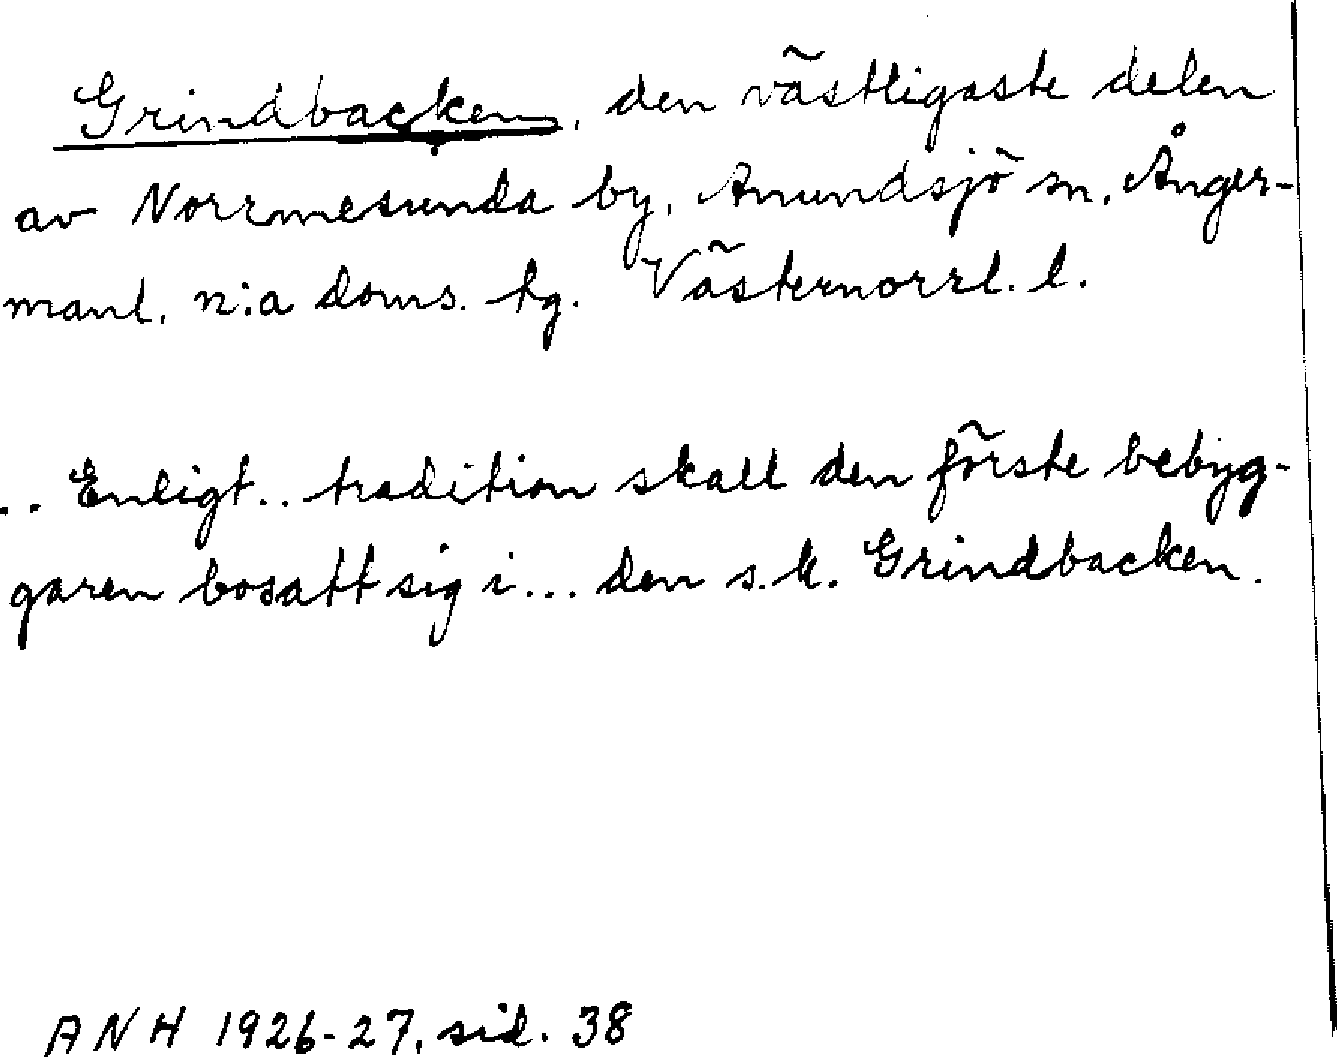 Grindbacken, den västligaste delen
av Norrmesunda by, Anundsjö sn, Ånger-
manl. n:a doms. hg. Västernorrl. l.
.. Enligt .. tradition skall den förste bebyg-
garen bosatt sig i ... den s.k. Grindbacken.
ANH 1926-27, sid. 38